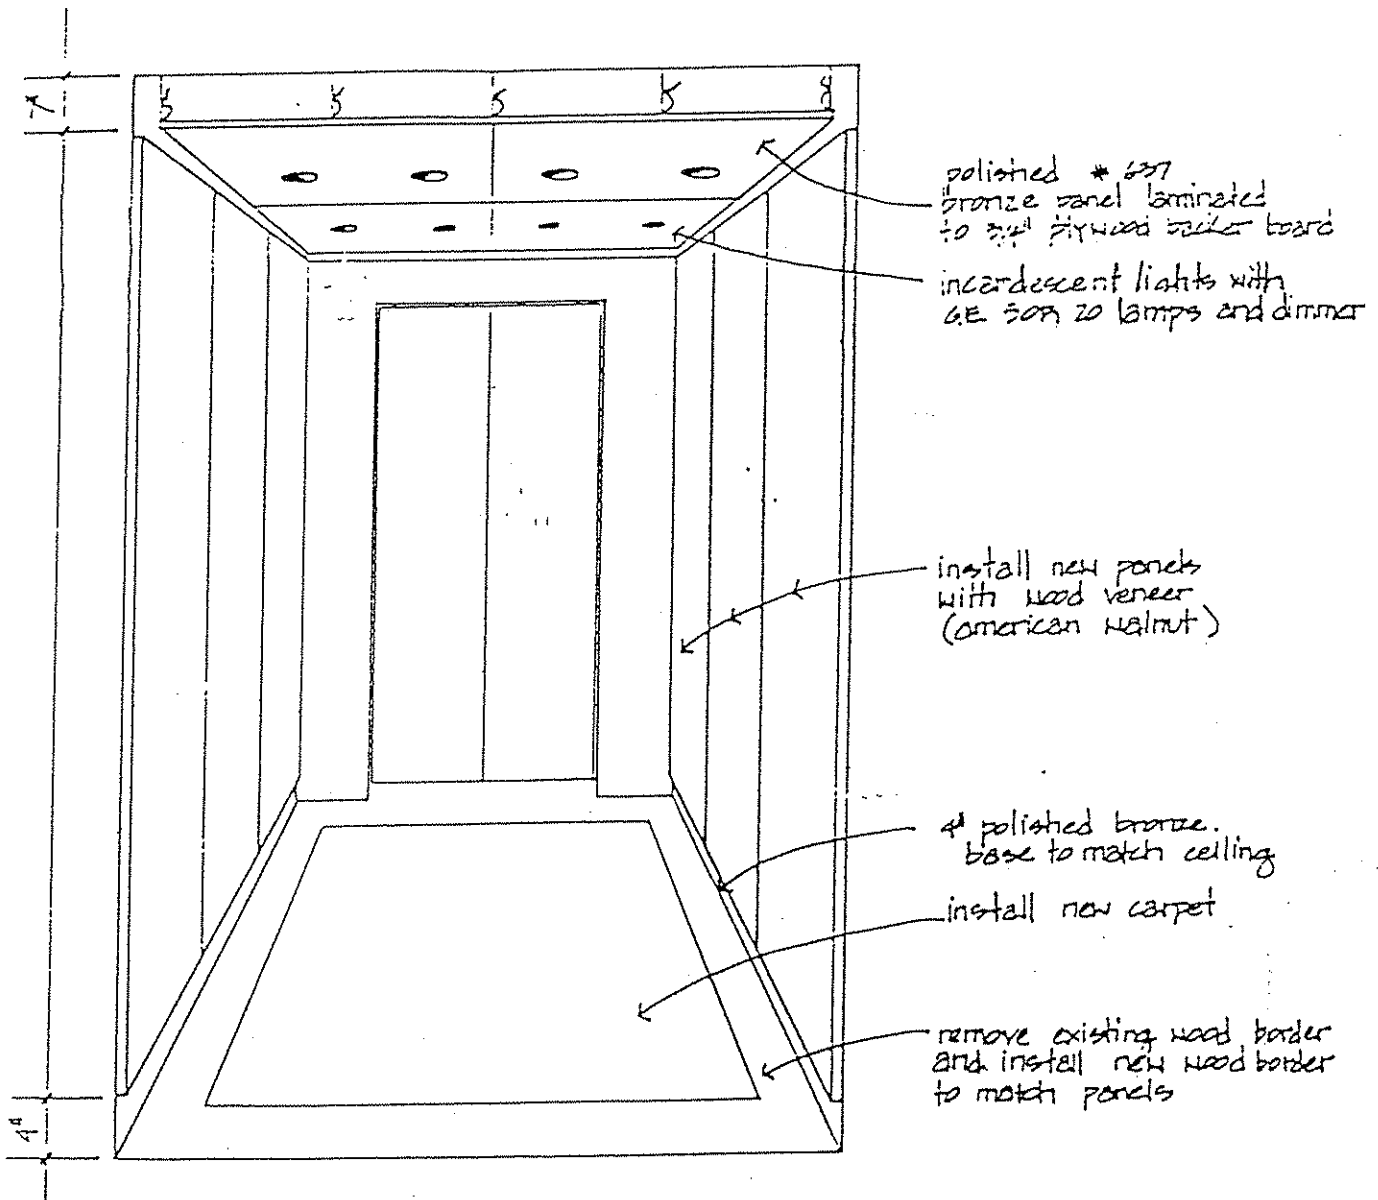 7"
polished # 637
bronze panel laminated
to 3/4" plywood backer board
incardescent lights with
G.E 50R 20 lamps and dimmer
install new panels
with wood veneer
(american walnut)
4" polished bronze.
base to match ceiling
install new carpet
remove existing wood border
and install new wood border
to match panels
4"